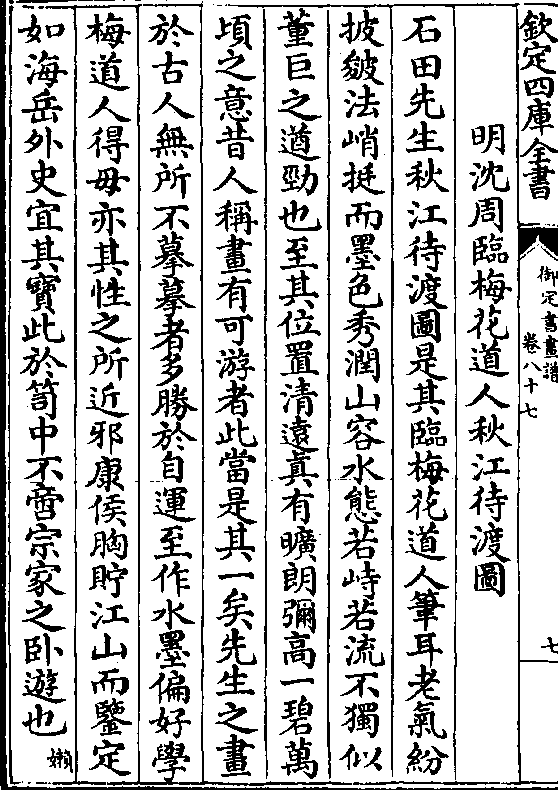 欽定四庫全書
御定書畫譜
卷八十七
七
明沈周臨梅花道人秋江待渡圖
石田先生秋江待渡圖是其臨梅花道人筆耳老氣紛
披皴法峭挺而墨色秀潤山容水態若峙若流不獨似
董巨之遒勁也至其位置清遠真有曠朗彌高一碧萬
頃之意昔人稱畫有可游者此當是其一矣先生之畫
於古人無所不摹摹者多勝於自運至作水墨偏好學
梅道人得毋亦其性之所近邪康侯胸貯江山而鑒定
如海岳外史宜其寶此於笥中不啻宗家之卧遊也
嬾